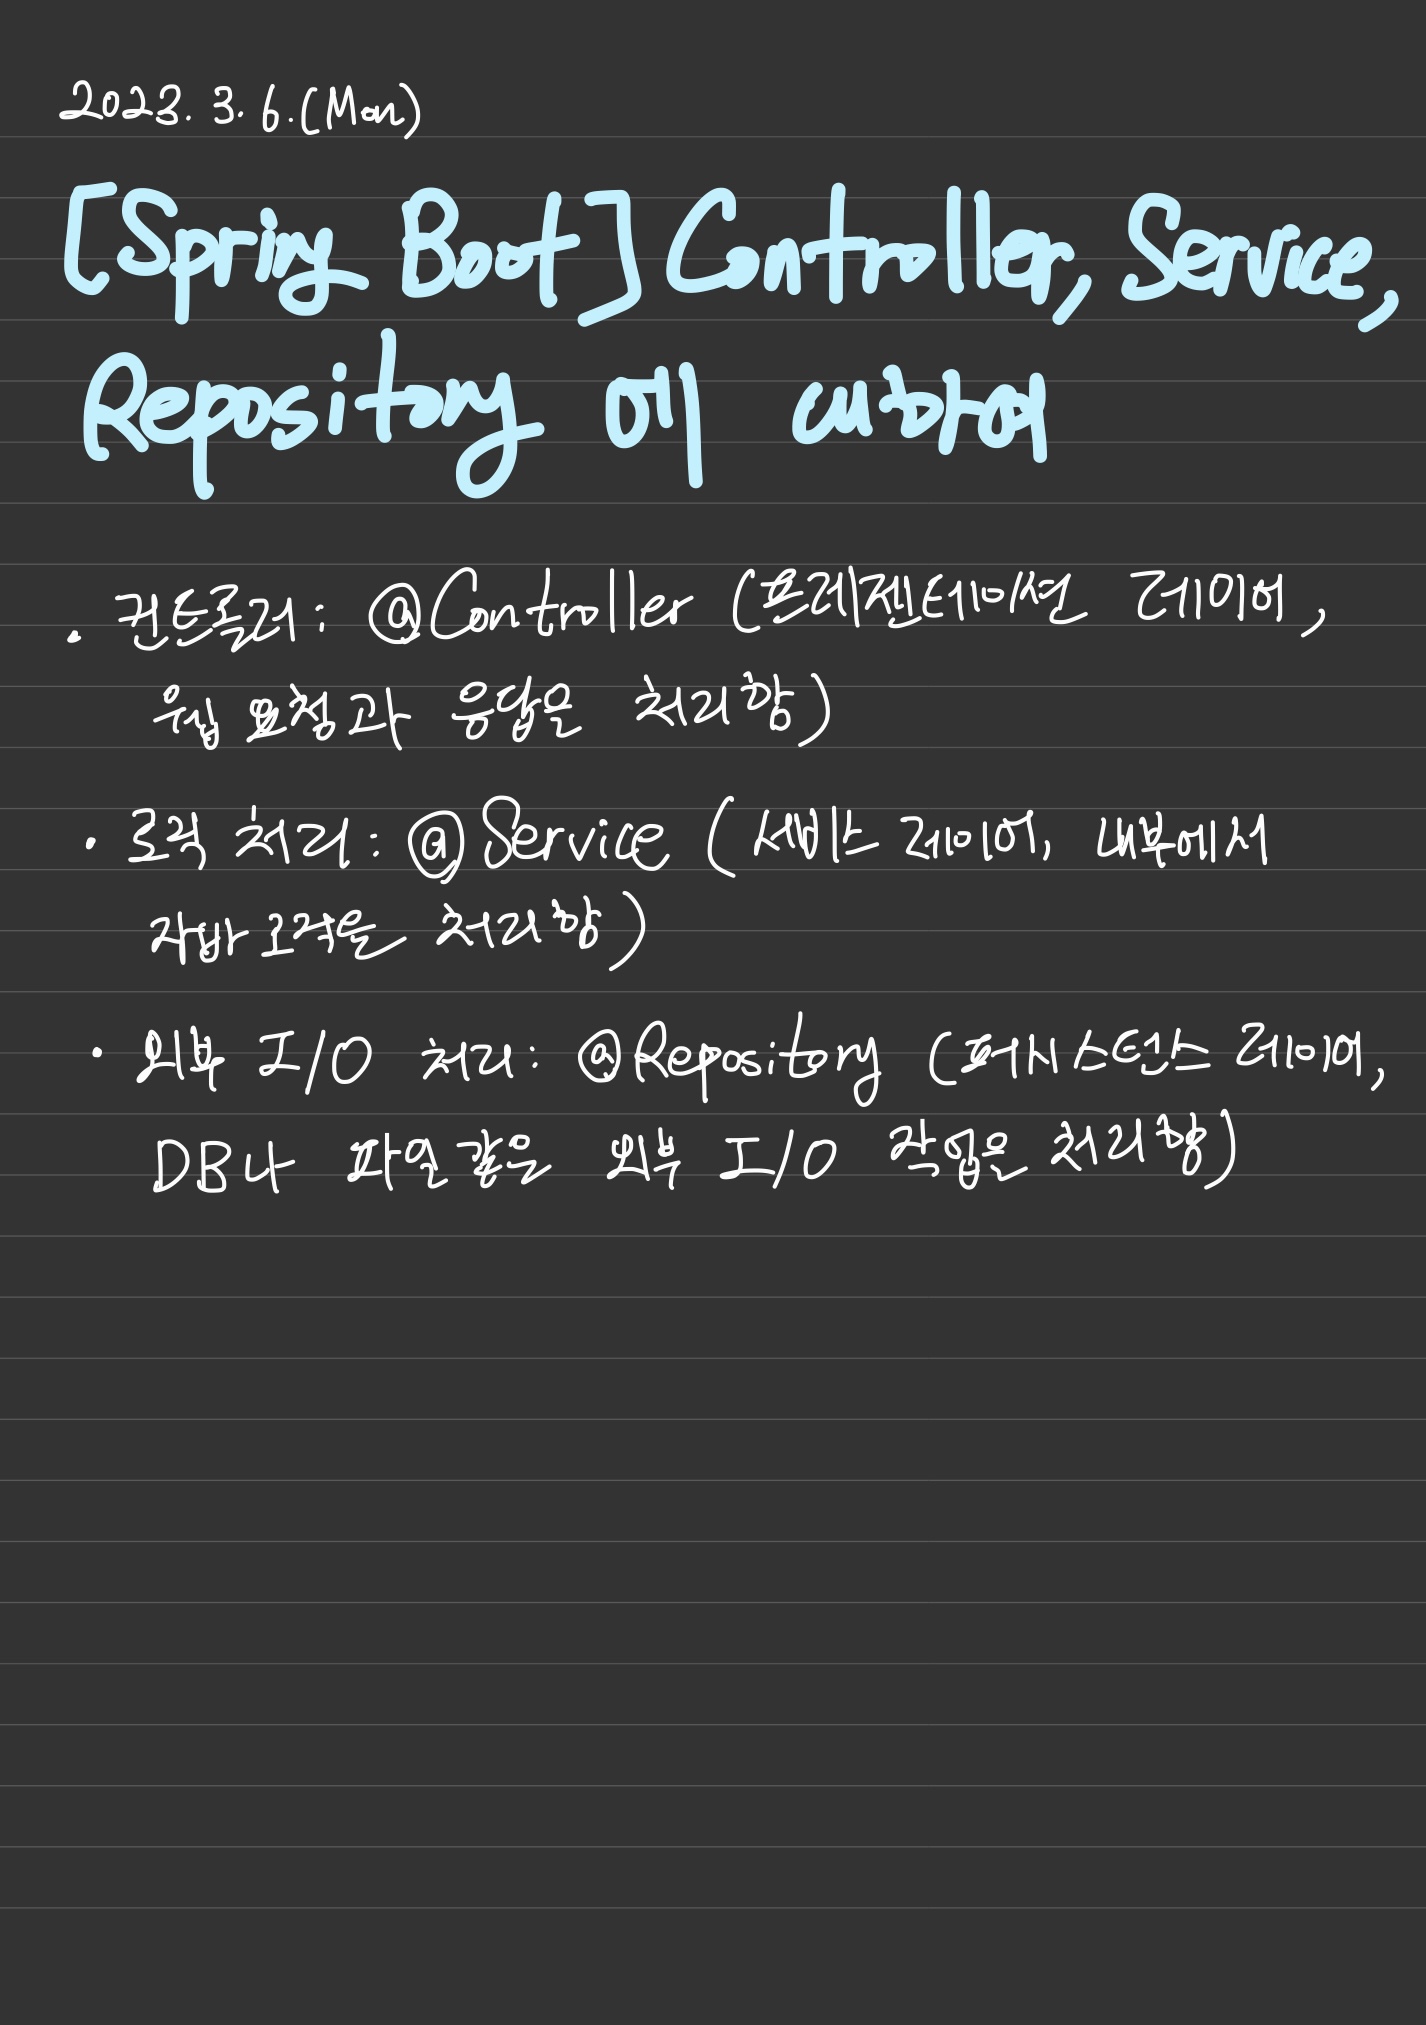 2023. 3. 6. (Mon)
[Spring Boot] Controller, Service,
Repository 에 대하여
· 컨트롤러 : @Controller (프레젠테이션 레이어,
웹 요청과 응답은 처리함)
· 로직 처리 : @Service (서비스 레이어, 내부에서
자바 로직을 처리함)
· 외부 I/O 처리 : @Repository (퍼시스턴스 레이어,
DB나 파일 같은 외부 I/O 작업은 처리함)